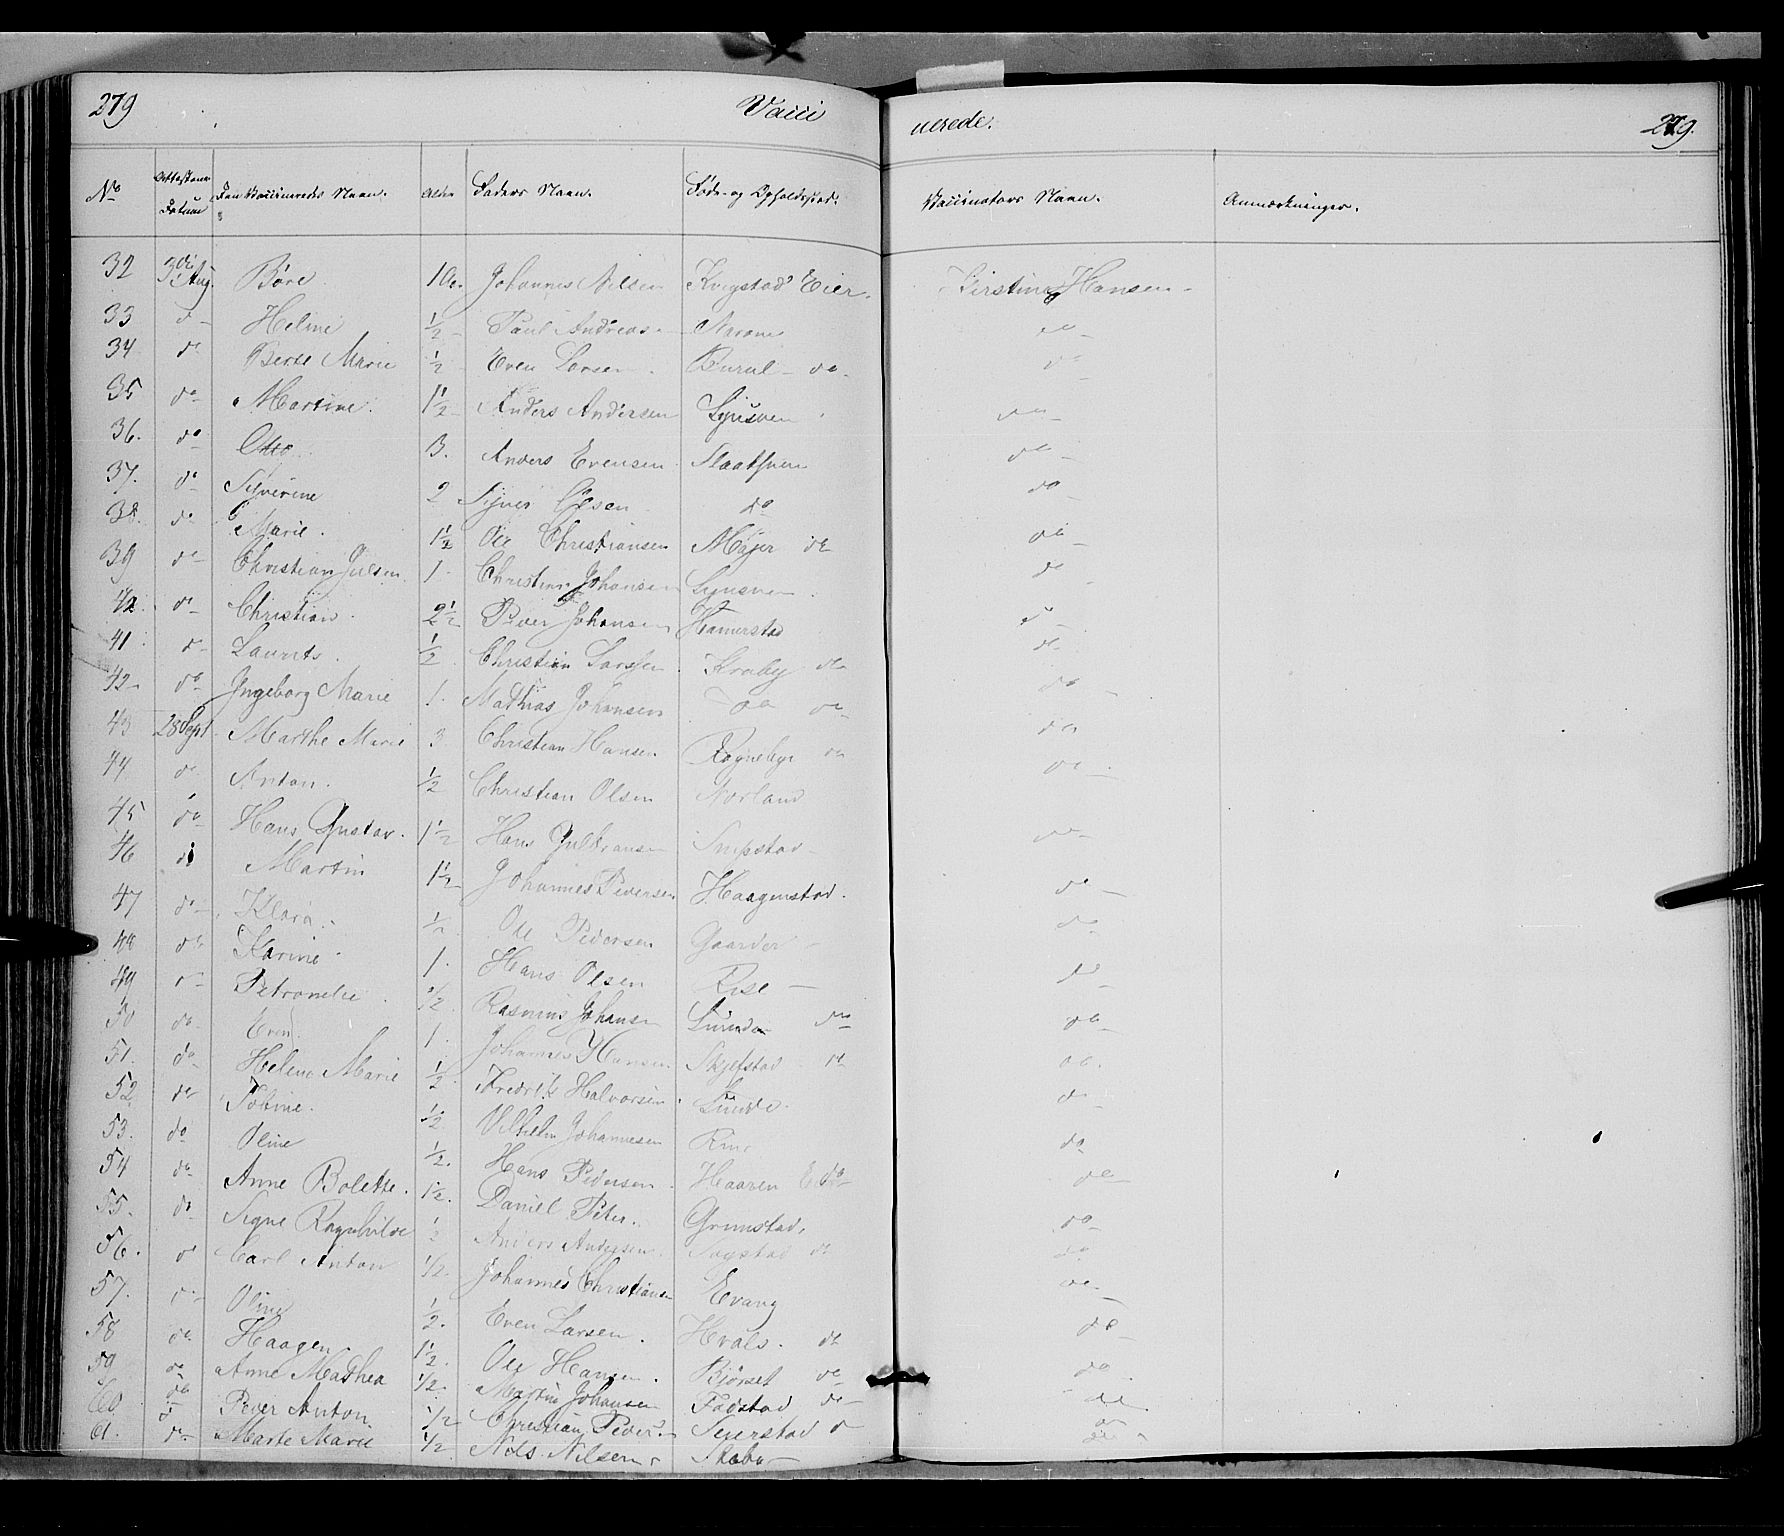 279 Vacci nerede. 279.
No Attestens Datum Den Vaccineredes Navn. Alder Faders Navn. Føde- og Opholdssted. Vaccinators Navn. Anmærkninger.
32 3die Aug. Johannes Nilsen Kvigstad Eier. Kirstine Hansen
33 do Helene 1/2 Paul Andreas do
34 do Berte Marie 1/2 Even Larsen do do
35 do Martine. 1 1/2 Anders Andersen do
36. do Otto 3. Anders Evensen do
37. do Syverine 2 Syver Olsen do do
38. do Marie. 1 1/2 Ole Christiansen Majer do do
39 do Christian Julsen 1 Christian Johansen do
do Christian. 2 1/2 Peder Johansen Hamerstad do
41 do Laurits. 1/2 Christian Larsen Kraby do do
42 do Ingeborg Marie 1 Mathias Johansen do do do
43 28 Sept Marthe Marie 3 Christian Hansen Rognebye do do
44 do Anton. 1/2 Christian Olsen Norland do
45 do Hans Gustav. 1 1/2 Hans Gulbransen do
46 do Martin 1 1/2 Johannes Pedersen Haagenstad. do
47 do Klara. 1/2 Ole Pedersen Gaarder do
48 do Karine. 1. Hans Olsen Rise do
49 do 1/2 Rasmus Johansen Lunde do do
50 do Even 1 Johannes Hansen Skjefstad do do
51. do Helene Marie 1/2 Fredrik Halvorsen Lunde. do
52 do 1/2 Vilhelm Johannesen do
53. do Oline 1/2. Hans Pedersen Haaren E do do
54 do Anne Bolette. 1 1/2. Daniel Peter. Grimstad, do
55. do Signe Ragnhilde 1/2 Anders Andersen. do do
56. do Carl Anton 1/2 Johannes Christiansen Evang do
57. do Oline 1/2. Even Larsen. Hvals. do do
58 do Haagen 1 1/2 Ole Hansen. Bjørset do do
59 do Anne Mathea 1/2. Martin Johansen Fodstad do do
60 do Peder Anton 1/2 Christian Peder. Seierstad do do
61. do Marte Marie 1/2 Nils Nilsen do